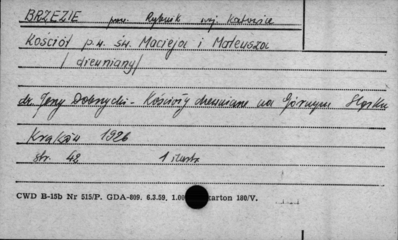 BRZEZIE pow. Rybnik woj. Katowice
Kościół p.w. św. Macieja i Mateusza
/drewniany/
dr Jerzy Dobrzycki - Kościoły drewniane na Górnym Śląsku
Kraków 1926
str. 48 1 ilustr.
CWD B-15b Nr 515/P. GDA-609. 6.2.59. 1.00 karton 180/V.